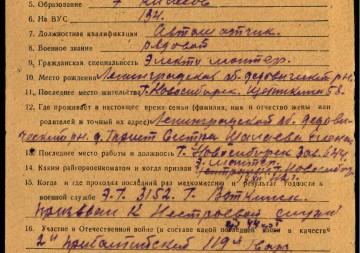 5. Образование 7 классов
6. На ВУС 134.
7. Должностная квалификация Автоматчик.
8. Военное звание рядовой
9. Гражданская специальность Электромонтер.
10. Место рождения Ленинградская об. Дедовический р-н.
11. Последнее место жительства г. Новосибирск
12. Где проживает в настоящее время семья (фамилия, имя и отчество жены или
родителей и точный их адрес) Ленинградской об. Дедови-
ческий рн. д. Сестра
13. Последнее место работы и должность г. Новосибирск Зав.
Эл. монтер.
14. Каким райгорвоенкоматом и когда призван Центральный Новосибир
15. Когда и где проходил последний раз медкомиссию и результат годности к
военной службе Э.Г. 3152. г.
Призван к нестроевой службе
16. Участие в Отечественной войне (в составе какой последней части в качестве
2й Прибалтийский 119й